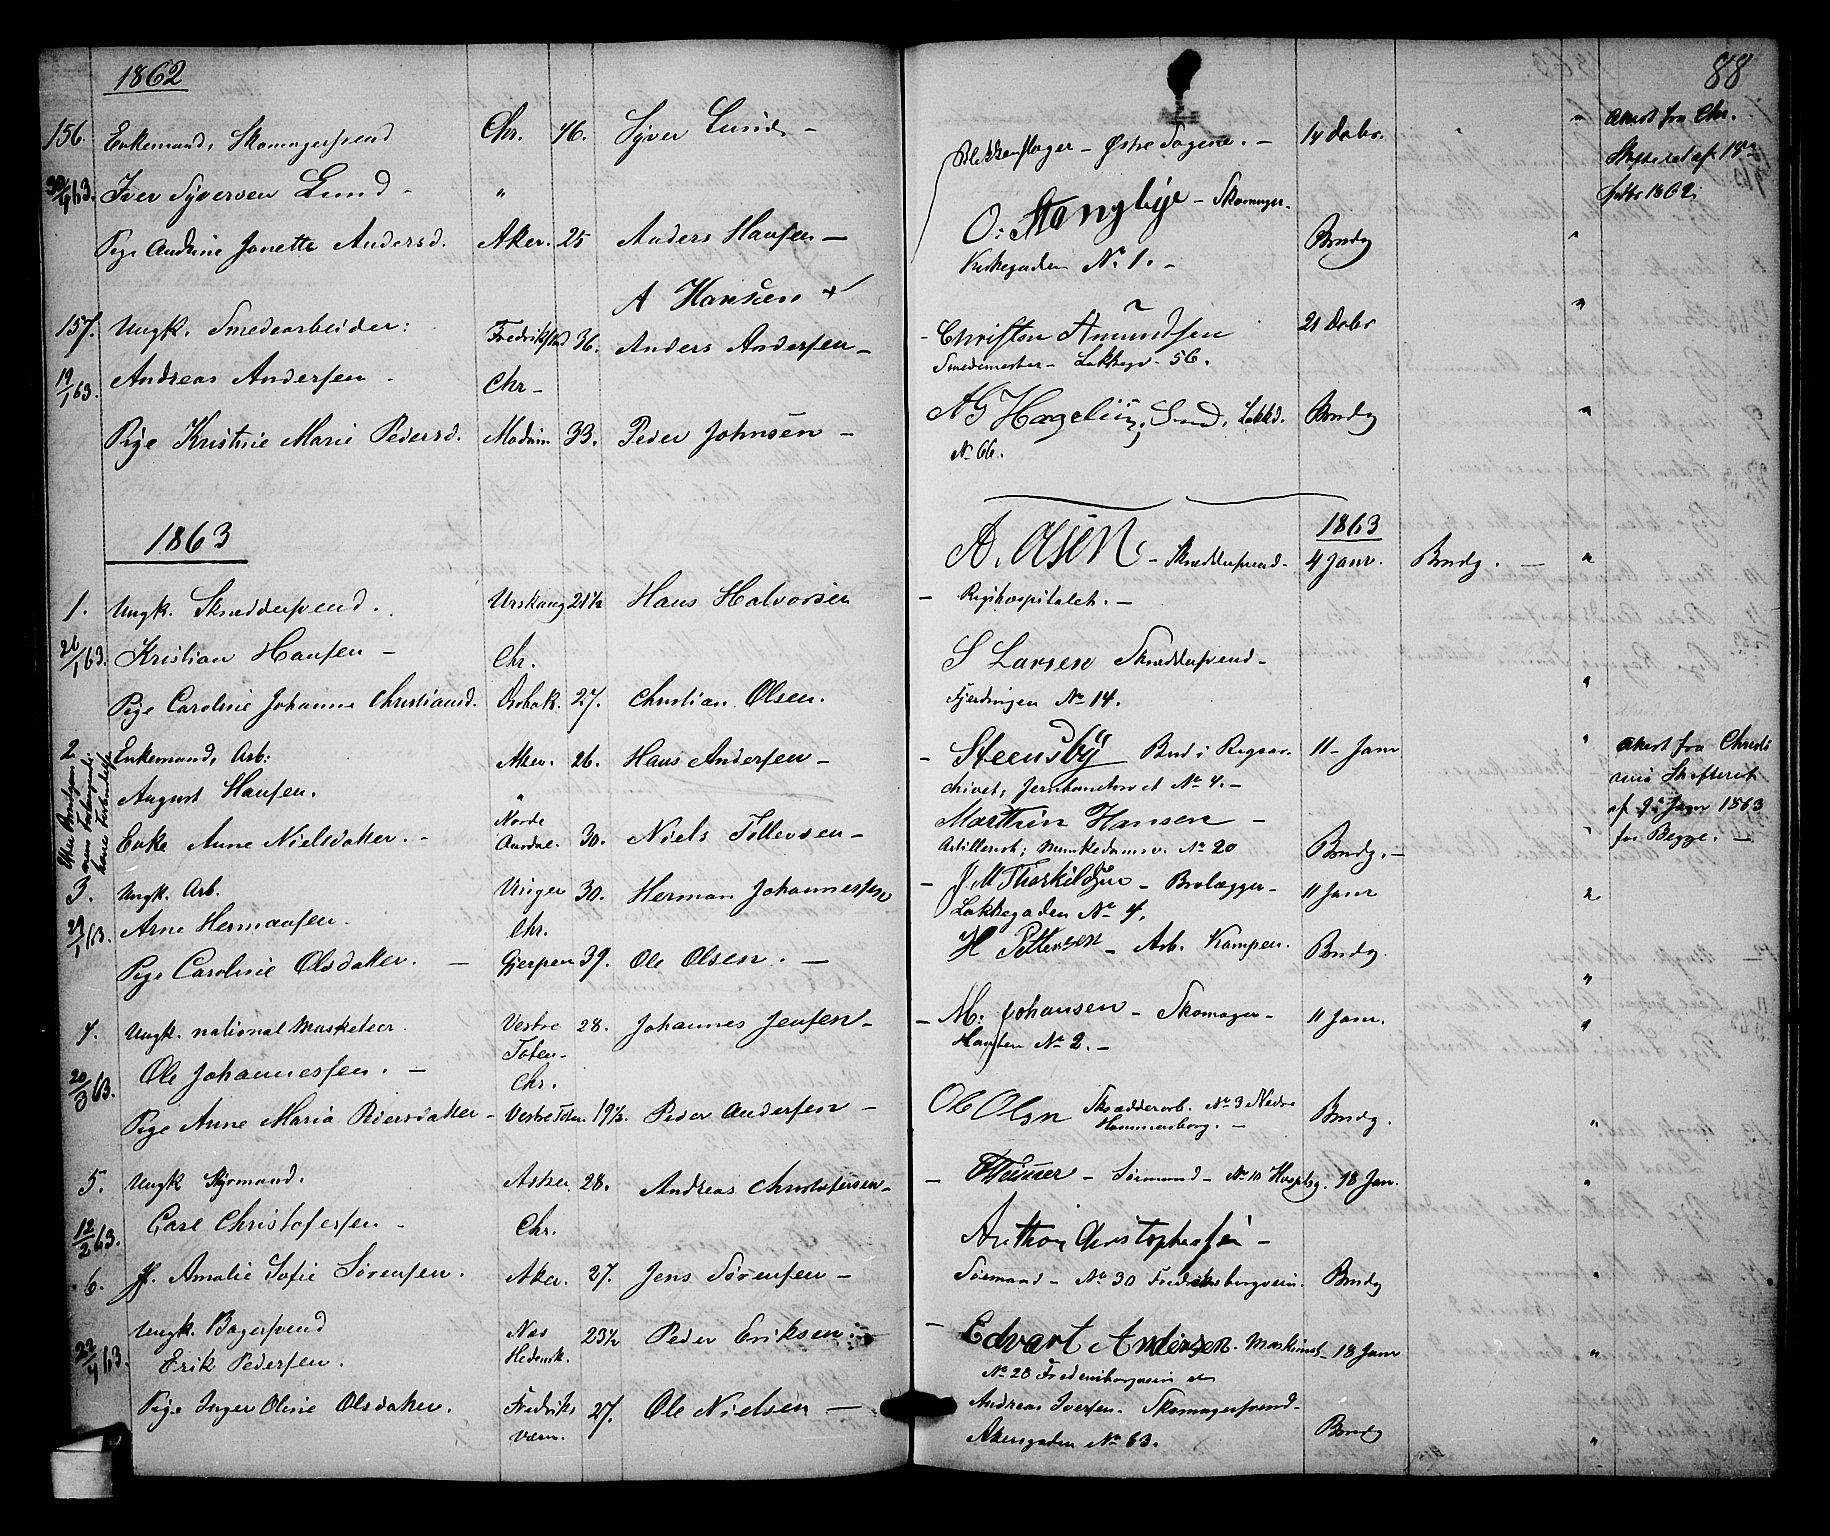 1862
156. Enkemand, Skomagersvend Chr. 46. Syver Lund -
63. Iver Syversen Lund - "
Pige Andrine Janette Andersd. Aker. 25 Anders Hansen -
A Hansen
157. Ungk. Smedearbeider: Fredrikstad 36. Anders Andersen -
19/1 63. Andreas Andersen - Chr -
Pige Kristine Marie Pedersd. Modum 33. Peder Johnsen -
1863
1. Ungk. Skræddersvend. Urskoug 21½ Hans Halvorsen
26/1 63. Kristian Hansen - Chr.
Pige Caroline Johanne Christiansd. Drøbak. 27. Christian Olsen.
2. Enkemand, Arb: Aker. 26. Hans Andersen -
August Hansen. "
Enke Anne Nielsdatter. - Nordre Aurdal. 30. Niels Tollevsen -
3. Ungk. Arb. Ringer 30. Herman Johannessen
29/1 63. Arne Hermansen. Chr.
Pige Caroline Olsdatter. - Gjerpen 39. Ole Olsen. -
4. Ungk. national Musketeer. Vestre 28. Johannes Jensen -
Toten -
20/3 63. Ole Johannessen. - Chr.
Pige Anne Maria Pedersdatter - Vestre Toten 19½. Peder Andersen -
5. Ungk Styrmand. Asker 28. Andreas Christofersen -
12/2 63. Carl Christofersen - Chr.
6. Pf. Amalie Sofie Sørensen. Aker. 27. Jens Sørensen -
Ungk. Bagersvend Næs 23½ Peder Eriksen.
22/4 63. Erik Pedersen. Hedemk.
Pige Inger Oline Olsdatter. Fredriks 27. Ole Nielsen -
værn.
88
Blikkenslager - Østre Sogene. - 14 Decbr. " Attest fra Chr.
Skifteret af 18de
O: Stenglye - Skomager. Decbr 1862.
Kirkegaden No 1. - Bmdg "
Christen Amundsen 21 Decbr "
Smedemester - Lakkegd. 56.
AG Hagelin, Smed, Lakkd. Bmdg "
No 66.
1863
A. Olsen - Skræddersvend - 4 Janr. Bmdg. - "
Rigshospitalet. -
S Larsen Skræddersvend -
Fjerdingen No 14. "
Steensby Bud i Rigsar- 11 - Janr " Attest fra Christi
chivet, Jernbanetorvet No 4. - ania Skifteret
Marthin Hansen - af 9de Janr 1863
Artillerist, Munkedamsv. No 20 Bmdg. - " for Begge. -
J. M Thorkildsen - Brolægger - 11 Janr "
Lakkegaden No 4.
H Pettersen - Arb. Kampen. Bmdg. "
M. Johansen - Skomager - 11 Janr. "
No 2. -
Ole Olsen Skrædderarb. No 3 Nedre Bmdg. "
Hammersborg. -
- Sømand - No 10 Hospitsg. 18 Jan. "
Anthon Christophersen -
Sømand - No 30 Fredriksborgvein. Bmdg "
Edvart Andersen. Maskinist - 18 Janr "
No 28 Fredensborgvein
Andreas Iversen. Skomagersvend -
Akersgaden No 63. Bmdg "